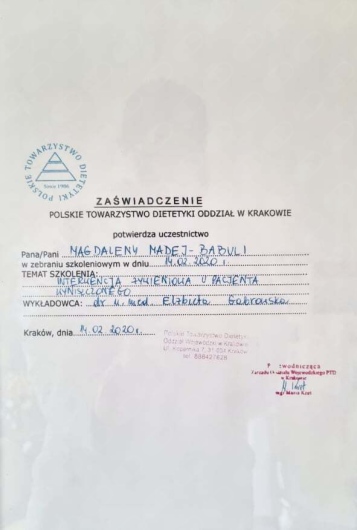 POLSKIE TOWARZYSTWO DIETETYKI
Since 1986
ZAŚWIADCZENIE
POLSKIE TOWARZYSTWO DIETETYKI ODDZIAŁ W KRAKOWIE
potwierdza uczestnictwo
Pana/Pani MAGDALENY MADEJ-BABULI
w zebraniu szkoleniowym w dniu 14.02.2020
TEMAT SZKOLENIA:
INTERWENCJA ŻYWIENIOWA U PACJENTA
WYNISZCZONEGO
WYKŁADOWCA: dr n. med. Elżbieta Gabrowska
Kraków, dnia 14.02.2020r.
Polskie Towarzystwo Dietetyki
Oddział Wojewódzki w Krakowie
31-034 Kraków
Zarządu Oddziału Wojewódzkiego PTD
w Krakowie
mgr Maria